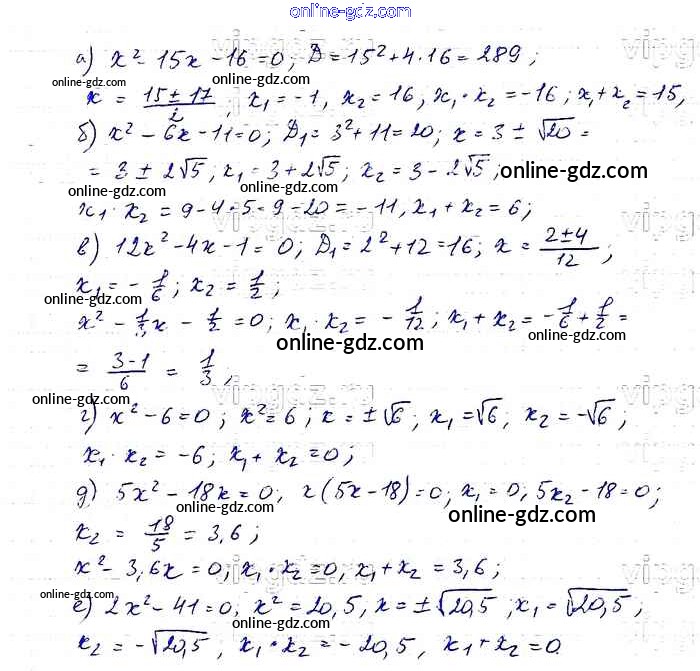 online-gdz.com
а) x² - 15x - 16 = 0; D = 15² + 4·16 = 289;
online-gdz.com online-gdz.com
x = (15 ± 17)/2, x₁ = -1, x₂ = 16, x₁·x₂ = -16; x₁ + x₂ = 15,
б) x² - 6x - 11 = 0; D₁ = 3² + 11 = 20; x = 3 ± √20 =
= 3 ± 2√5; x₁ = 3 + 2√5; x₂ = 3 - 2√5; online-gdz.com
online-gdz.com online-gdz.com
x₁·x₂ = 9 - 4·5 = 9 - 20 = -11, x₁ + x₂ = 6;
в) 12x² - 4x - 1 = 0; D₁ = 2² + 12 = 16; x = (2 ± 4)/12;
x₁ = -1/6; x₂ = 1/2;
online-gdz.com online-gdz.com
x² - 1/3x - 1/2 = 0; x₁·x₂ = -1/12; x₁ + x₂ = -1/6 + 1/2 =
online-gdz.com online-gdz.com
= (3-1)/6 = 1/3;
online-gdz.com online-gdz.com
г) x² - 6 = 0; x² = 6; x = ±√6; x₁ = √6, x₂ = -√6;
x₁·x₂ = -6; x₁ + x₂ = 0;
д) 5x² - 18x = 0, x(5x - 18) = 0; x₁ = 0, 5x₂ - 18 = 0;
online-gdz.com online-gdz.com
x₂ = 18/5 = 3,6;
x² - 3,6x = 0, x₁·x₂ = 0, x₁ + x₂ = 3,6;
online-gdz.com online-gdz.com
е) 2x² - 41 = 0, x² = 20,5, x = ±√20,5; x₁ = √20,5;
online-gdz.com
x₂ = -√20,5, x₁·x₂ = -20,5, x₁ + x₂ = 0.